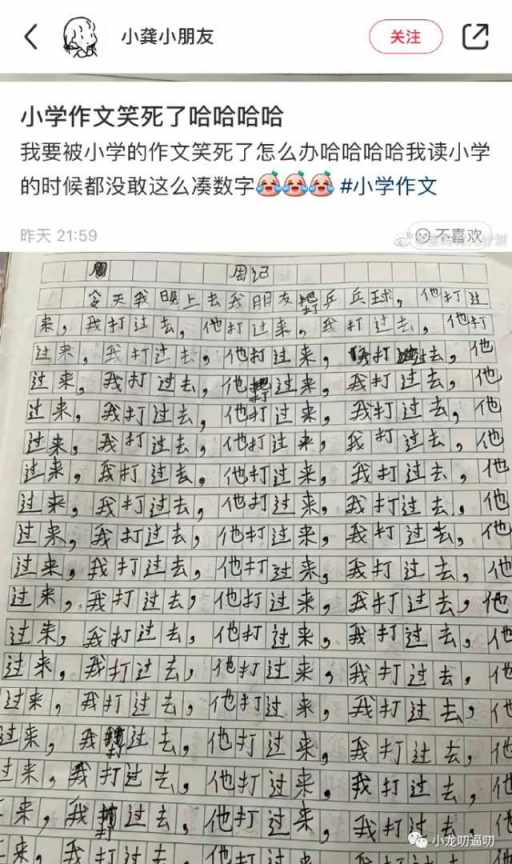 小龚小朋友
关注
小学作文笑死了哈哈哈哈
我要被小学的作文笑死了怎么办哈哈哈哈我读小学
的时候都没敢这么凑数字 #小学作文
昨天 21:59
不喜欢
周 周记
今天我晚上去我朋友打乒乓球，他打过
来，我打过去，他打过来，我打过去，他打
过来，我打过去，他打过来，我打过去，他
过来，我打过去，他打过来，我打过去，他
过来，我打过去，他打过来，我打过去，他
过来，我打过去，他打过来，我打过去，他
过来，我打过去，他打过来，我打过去，他
过来，我打过去，他打过来，我打过去，他
过来，我打过去，他打过来，我打过去，他
过来，我打过去，他打过来，我打过去，他
过来，我打过去，他打过来，我打过去，他
过来，我打过去，他打过来，我打过去，他
过来，我打过去，他打过来，我打过去，他
过来，我打过去，他打过来，我打过去，他
过来，我打过去，他打过来，我打过去，他
过来，我打过去，他打过来，我打过去，他
来，我打过去，他打过来，我打过去，他
来，我打过去，他打过来，我打
小龙叨逼叨